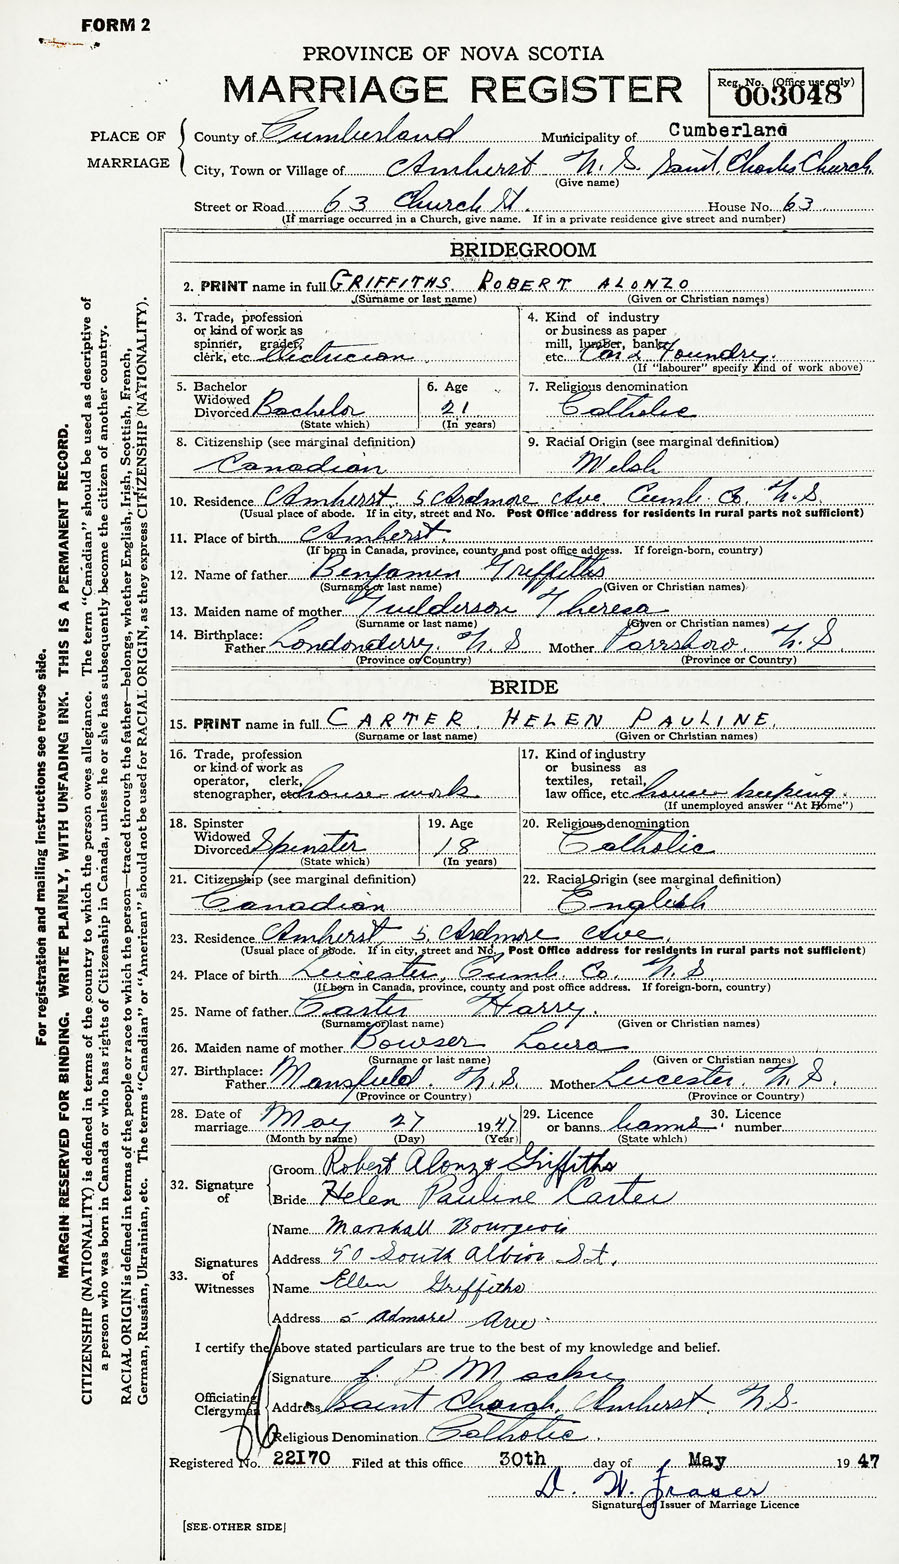 FORM 2
PROVINCE OF NOVA SCOTIA
MARRIAGE REGISTER
Reg. No. (Office use only)
003048
PLACE OF MARRIAGE
County of Cumberland Municipality of Cumberland
City, Town or Village of Amherst N. S. Saint Charles Church
(Give name)
Street or Road 63 Church St. House No. 63
(If marriage occurred in a Church, give name. If in a private residence give street and number)
BRIDEGROOM
2. PRINT name in full GRIFFITHS. ROBERT ALONZO
(Surname or last name) (Given or Christian names)
3. Trade, profession or kind of work as spinner, grader, clerk, etc. Electrician
4. Kind of industry or business as paper mill, lumber, bank, etc. Car & Foundry.
(If "labourer" specify kind of work above)
5. Bachelor Widowed Divorced Bachelor
(State which)
6. Age 21
(In years)
7. Religious denomination Catholic
8. Citizenship (see marginal definition)
Canadian
9. Racial Origin (see marginal definition)
Welsh
10. Residence Amherst, 5 Ardmore Ave. Cumb. Co. N.S.
(Usual place of abode. If in city, street and No. Post Office address for residents in rural parts not sufficient)
11. Place of birth Amherst.
(If born in Canada, province, county and post office address. If foreign-born, country)
12. Name of father Benjamin Griffiths
(Surname or last name) (Given or Christian names)
13. Maiden name of mother Gulderson Theresa
(Surname or last name) (Given or Christian names)
14. Birthplace: Father Londonderry. N S Mother Parrsboro. N. S
(Province or Country) (Province or Country)
BRIDE
15. PRINT name in full CARTER, HELEN PAULINE.
(Surname or last name) (Given or Christian names)
16. Trade, profession or kind of work as operator, clerk, stenographer, etc. house work
17. Kind of industry or business as textiles, retail, law office, etc. house keeping.
(If unemployed answer "At Home")
18. Spinster Widowed Divorced Spinster
(State which)
19. Age 18
(In years)
20. Religious denomination
Catholic
21. Citizenship (see marginal definition)
Canadian
22. Racial Origin (see marginal definition)
English
23. Residence Amherst, 5. Ardmore Ave.
(Usual place of abode. If in city, street and No. Post Office address for residents in rural parts not sufficient)
24. Place of birth Leicester, Cumb. Co. N. S
(If born in Canada, province, county and post office address. If foreign-born, country)
25. Name of father Carter Harry.
(Surname or last name) (Given or Christian names)
26. Maiden name of mother Bowser Laura
(Surname or last name) (Given or Christian names)
27. Birthplace: Father Mansfield. N. S. Mother Leicester. N. S.
(Province or Country) (Province or Country)
28. Date of marriage May 27 1947
(Month by name) (Day) (Year)
29. Licence or banns banns.
(State which)
30. Licence number
32. Signature of
Groom Robert Alonzo Griffiths
Bride Helen Pauline Carter
33. Signatures of Witnesses
Name Marshall Bourgeois
Address 50 South Albion St.
Name Ellen Griffiths
Address 5 Admore Ave.
I certify the above stated particulars are true to the best of my knowledge and belief.
Officiating Clergyman
Signature J. P. M
Address Saint Church, Amherst N.S.
Religious Denomination Catholic.
Registered No. 22170 Filed at this office 30th day of May 1947
D. W. Fraser
Signature of Issuer of Marriage Licence
[SEE OTHER SIDE]
For registration and mailing instructions see reverse side.
MARGIN RESERVED FOR BINDING. WRITE PLAINLY, WITH UNFADING INK. THIS IS A PERMANENT RECORD.
CITIZENSHIP (NATIONALITY) is defined in terms of the country to which the person owes allegiance. The term "Canadian" should be used as descriptive of
a person who was born in Canada or who has rights of Citizenship in Canada, unless he or she has subsequently become the citizen of another country.
RACIAL ORIGIN is defined in terms of the people or race to which the person—traced through the father—belongs, whether English, Irish, Scottish, French,
German, Russian, Ukrainian, etc. The terms "Canadian" or "American" should not be used for RACIAL ORIGIN, as they express CITIZENSHIP (NATIONALITY).